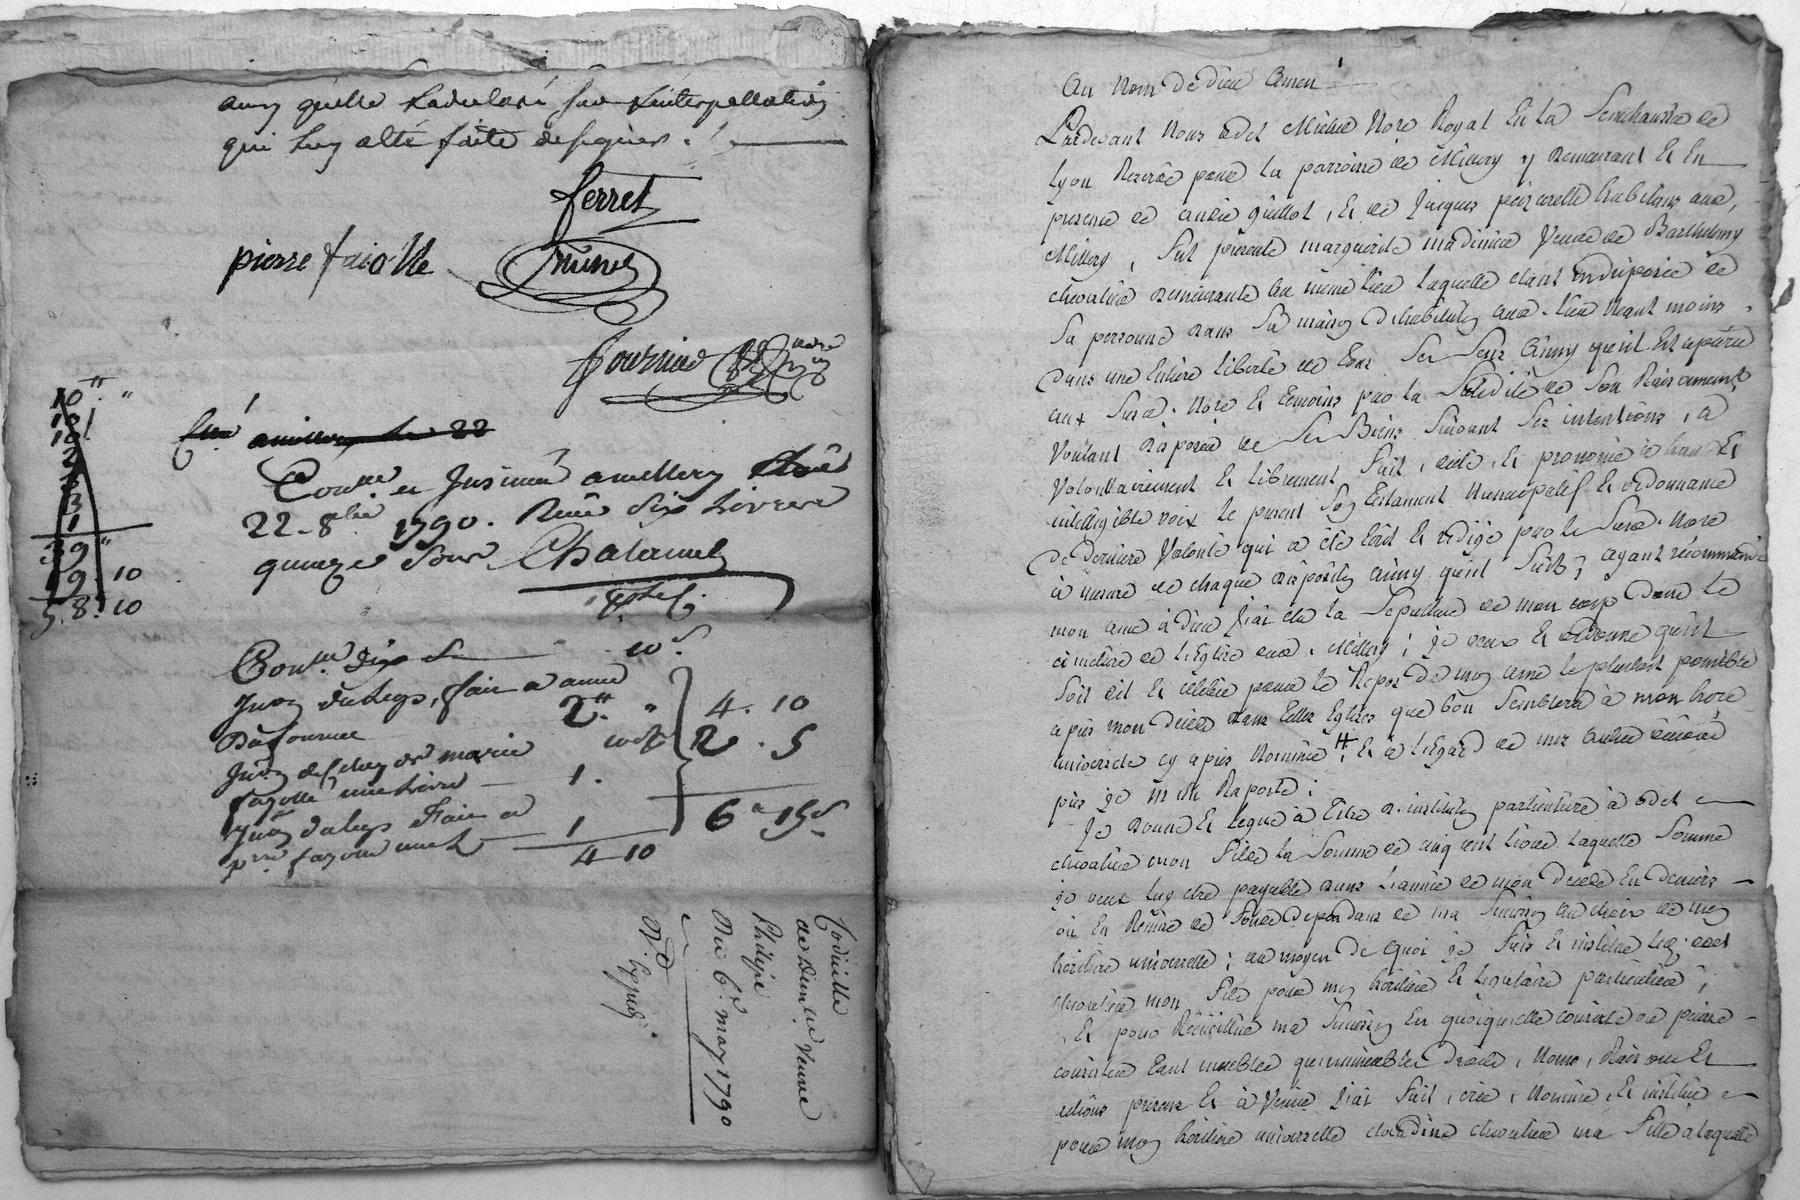 ainsy qu'elle l'a declaré sur l'interpellation
qui luy a été faite de signer . /
ferret
pierre faiolle
10 "
39 "
19 . 10
58 . 10
amillery le 22
Con.lle et Insinué amillery
22 8bre 1790. Reçu six livres
quinze sous Chatanel
Con.lle dix s 10 s
Insn du legs fait a anne
2 " "
4 . 10
2 . 5
Insn marie
fayolle une livre 1 .
6 " 15 s
Insn du legs fait a
1
4 10
Codicille
veuve
Philipe
Du 6e may 1790
Au Nom de dieu amen
Pardevant Nous odet Notre Royal En la Senechaussée de
Lyon Reservé pour la parroisse de Millery y demeurant Et En
presence de andré guillot, Et de Jacques habitans aud.
Millery, fut presente marguerite Veuve de Barthelemy
chevalier demeurante au même lieu laquelle etant indisposée de
sa personne dans sa maison d'habitation aud. lieu Neant moins
dans une Entiere liberté de tous ses sens ainsy qu'il Est apparu
aux susd. Nore Et temoins par la Solidité de son Raisonnement
Voulant disposer de ses Biens suivant ses intentions, a
Volontairement Et librement fait, dicté, Et prononcé à haute Et
intelligible voix le present son testament Nuncupatif Et ordonnance
de derniere Volonté qui a eté Ecrit Et redigé par le susd. Nore
à mesure de chaque disposition ainsy qu'il suit; ayant recommandé
mon ame à dieu j'ai elu la Sepulture de mon corp dans le
cimetiere de l'Eglise dud. Millery; je veux Et ordonne qu'il
soit dit Et celebré pour le Repos de mon ame le plustost possible
apres mon deces dans telles Eglises que bon semblera à mon here
universele cy apres Nommée, Et à l'egard de mes autres œuvres
pies je m'en Raporte;
Je donne Et legue à titre d'institution particuliere à odet
chevalier mon fils la somme de cinq cent livres laquelle somme
je veux luy etre payable dans l'année de mon deces En deniers
ou En Nature de fonds dependans de ma succession au choix de mon
heritiere universelle; au moyen de quoi je fais Et institue led. odet
chevalier mon fils pour mon heritier Et legataire particulier;
Et pour Recueillir ma succession En quoiqu'elle consiste ou puisse
consister tant meubles qu'immeubles Droits, Noms, Raisons Et
actions presens Et à Venir j'ai fait, créé, Nommé, Et institué
pour mon heritiere universelle claudine chevalier ma fille à laquelle